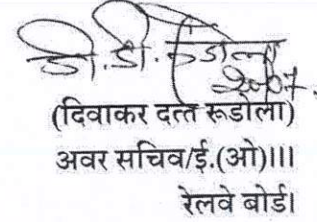 डी.डी. रूडोला
(दिवाकर दत्त रूडोला)
अवर सचिव/ई.(ओ)III
रेलवे बोर्ड।